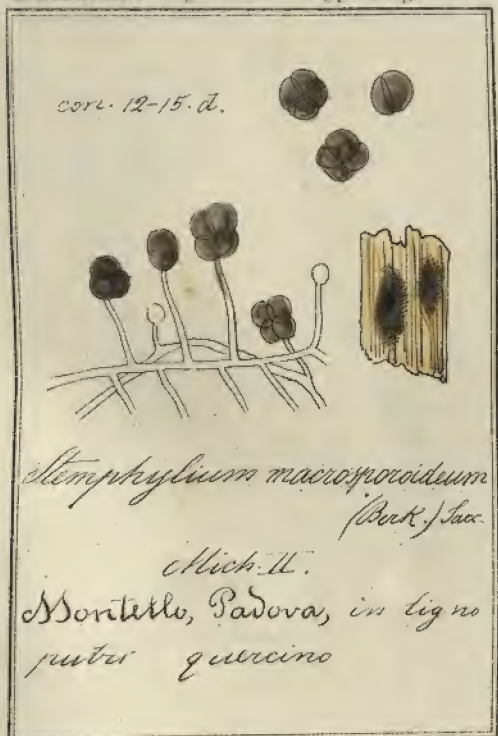 con. 12-15. d.
Stemphylium macrosporoideum
(Berk.) Sacc.
Mich. II.
Montello, Padova, in ligno
putri quercino